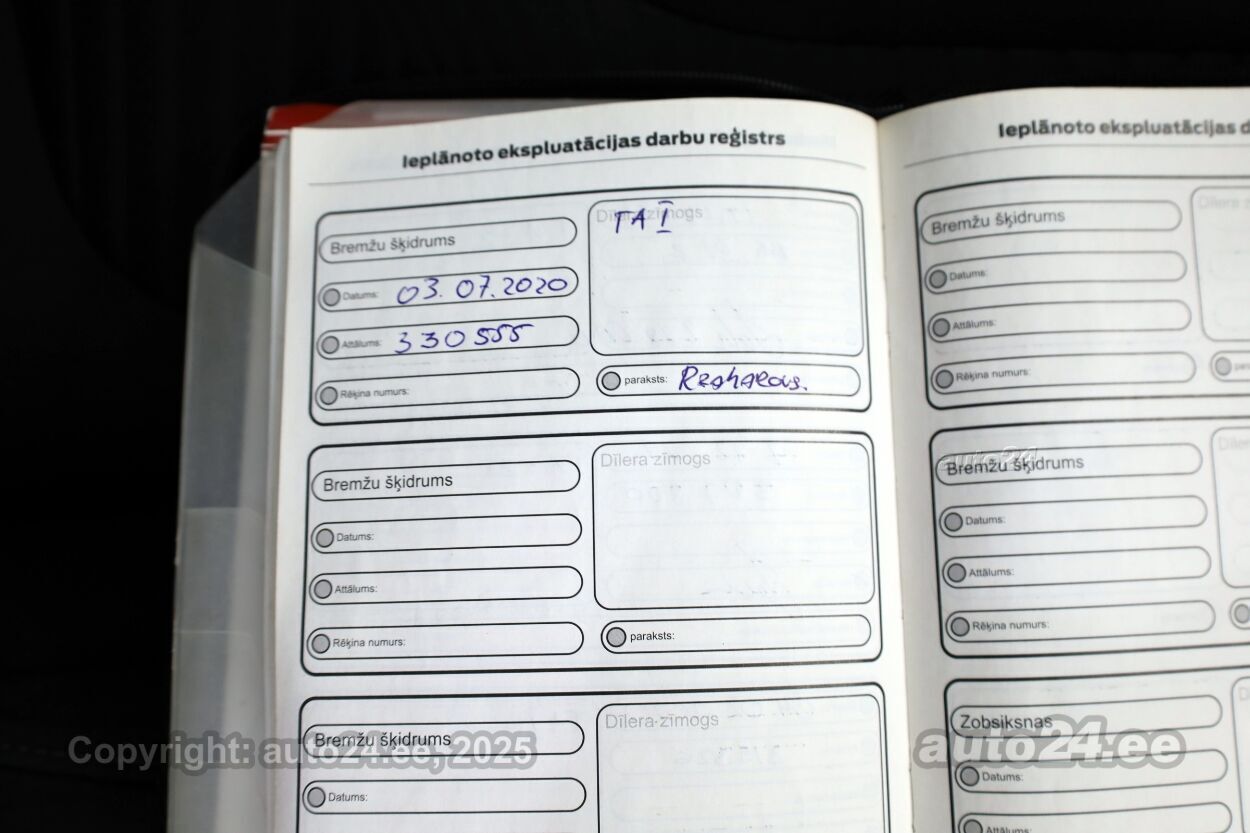 Ieplānoto ekspluatācijas darbu reģistrs
Bremžu šķidrums
Datums: 03.07.2020
Attālums: 330555
Rēķina numurs:
Dīlera zīmogs
TA I
paraksts:
Bremžu šķidrums
Datums:
Attālums:
Rēķina numurs:
Dīlera zīmogs
paraksts:
Bremžu šķidrums
Datums:
Dīlera zīmogs
Ieplānoto ekspluatācijas d
Bremžu šķidrums
Datums:
Attālums:
Rēķina numurs:
Dīlera z
auto24
Bremžu šķidrums
Datums:
Attālums:
Rēķina numurs:
Zobsiksnas
Datums:
Attālums:
Copyright: auto24.ee, 2025
auto24.ee